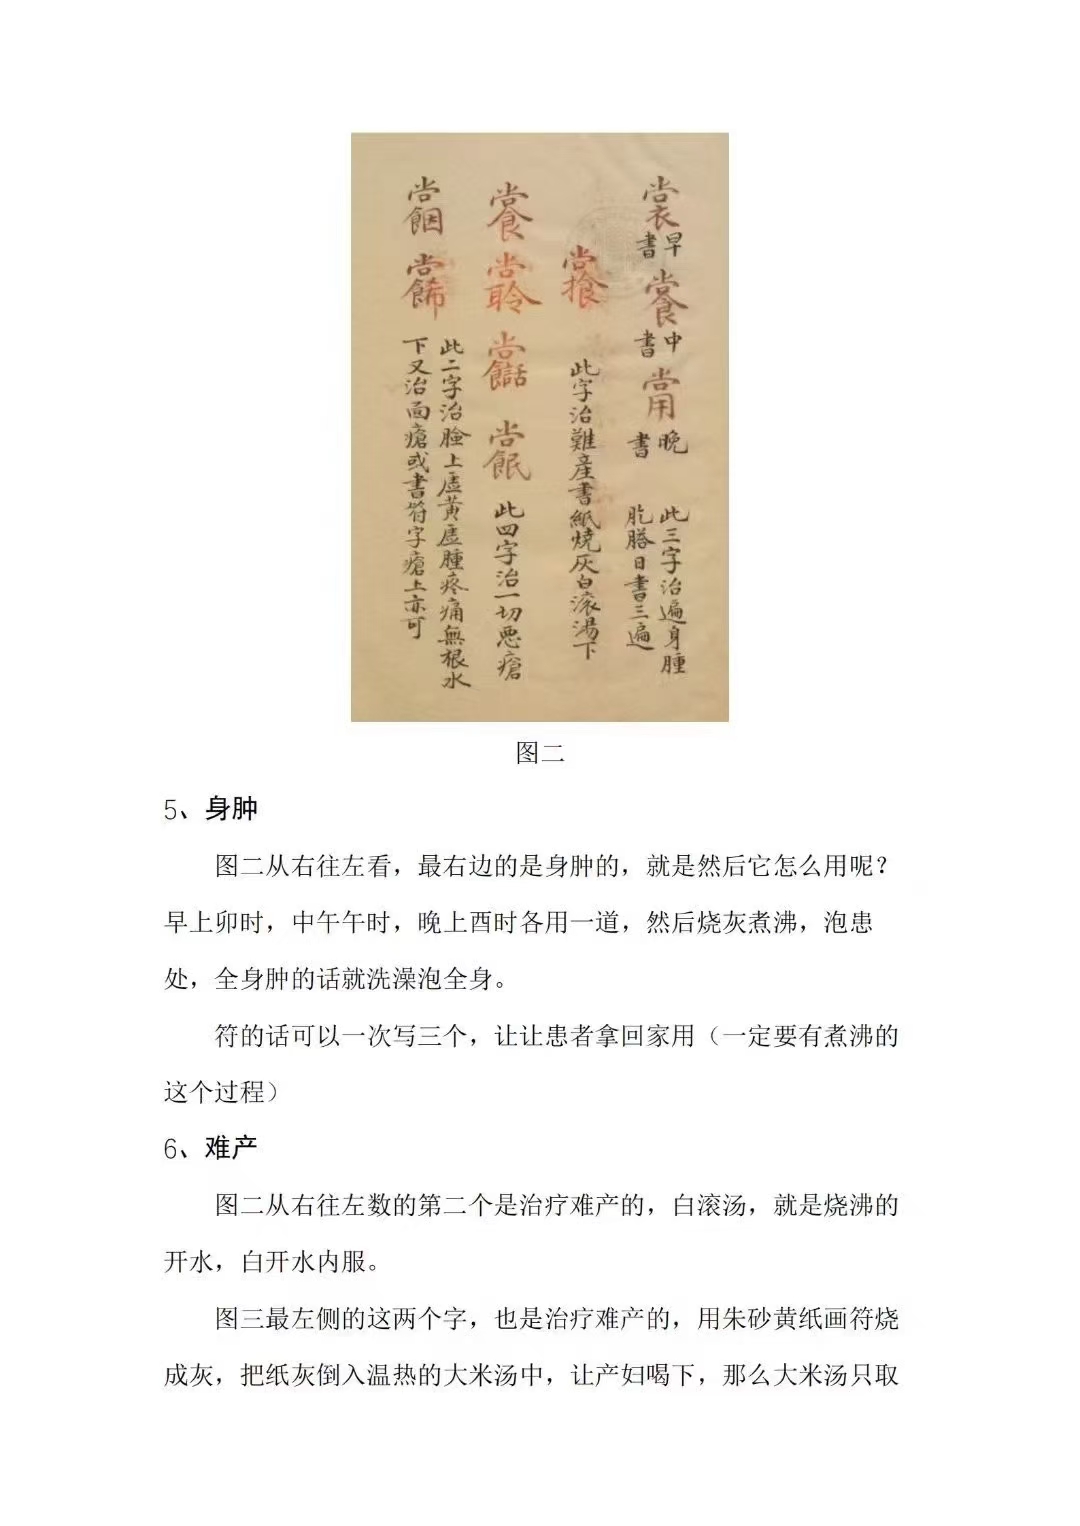 早書
中書
晚書
此三字治遍身腫
肐膊日書三遍
此字治難産書紙燒灰白滚湯下
此四字治一切惡瘡
此二字治臉上虛黃虛腫疼痛無根水
下又治面瘡或書符字瘡上亦可
图二
5、身肿
图二从右往左看，最右边的是身肿的，就是然后它怎么用呢？
早上卯时，中午午时，晚上酉时各用一道，然后烧灰煮沸，泡患
处，全身肿的话就洗澡泡全身。
符的话可以一次写三个，让让患者拿回家用（一定要有煮沸的
这个过程）
6、难产
图二从右往左数的第二个是治疗难产的，白滚汤，就是烧沸的
开水，白开水内服。
图三最左侧的这两个字，也是治疗难产的，用朱砂黄纸画符烧
成灰，把纸灰倒入温热的大米汤中，让产妇喝下，那么大米汤只取